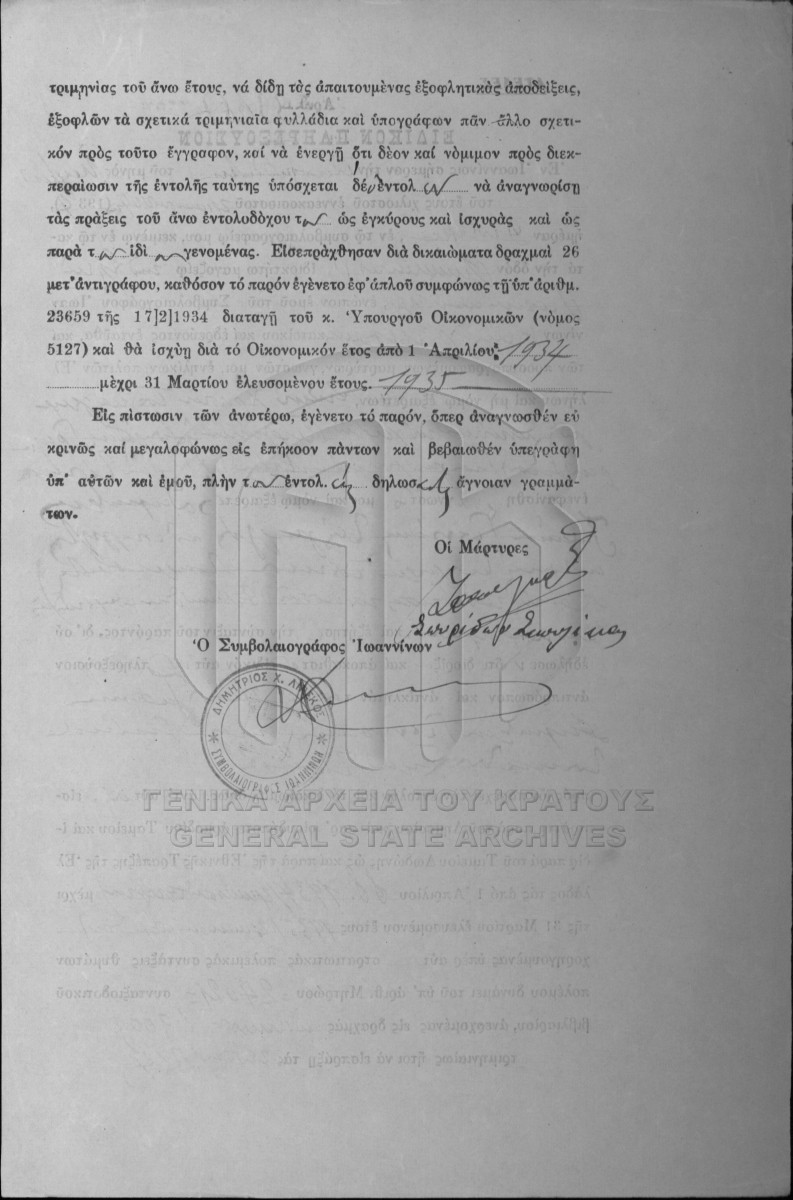 τριμηνίας τοῦ ἄνω ἔτους, νά δίδῃ τὰς ἀπαιτουμένας ἐξοφλητικὰς ἀποδείξεις,
ἐξοφλῶν τὰ σχετικά τριμηνιαῖα φυλλάδια καὶ ὑπογράφων πᾶν ἄλλο σχετι-
κόν πρὸς τοῦτο ἔγγραφον, καί νὰ ἐνεργῇ ὅτι δέον καί νόμιμον πρὸς διεκ-
περαίωσιν τῆς ἐντολῆς ταύτης ὑπόσχεται δέ ἐντολ νὰ ἀναγνωρίσῃ
τὰς πράξεις τοῦ ἄνω ἐντολοδόχου τ ὡς ἐγκύρους καὶ ἰσχυρὰς καὶ ὡς
παρὰ τ ἰδί γενομένας. Εἰσεπράχθησαν διὰ δικαιώματα δραχμαὶ 26
μετ' ἀντιγράφου, καθόσον τό παρόν ἐγένετο ἐφ' ἁπλοῦ συμφώνως τῇ ὑπ' ἀριθμ.
23659 τῆς 17]2]1934 διαταγῇ τοῦ κ. Ὑπουργοῦ Οἰκονομικῶν (νόμος
5127) καὶ θὰ ἰσχύῃ διὰ τό Οἰκονομικόν ἔτος ἀπὸ 1 Ἀπριλίου 1934
μὲχρι 31 Μαρτίου ἐλευσομένου ἔτους. 1935
Εἰς πίστωσιν τῶν ἀνωτέρω, ἐγένετο τό παρόν, ὅπερ ἀναγνωσθέν εὐ
κρινῶς καί μεγαλοφώνως εἰς ἐπήκοον πάντων καὶ βεβαιωθέν ὑπεγράφη
ὑπ' αὐτῶν καὶ ἐμοῦ, πλὴν τ ἐντολ. δηλωσ ἄγνοιαν γραμμά-
των.
Οἱ Μάρτυρες
Σπυρίδων
Ὁ Συμβολαιογράφος Ἰωαννίνων
ΔΗΜΗΤΡΙΟΣ Χ.
ΣΥΜΒΟΛΑΙΟΓΡΑΦΟΣ ΙΩΑΝΝΙΝΩΝ
ΓΕΝΙΚΑ ΑΡΧΕΙΑ ΤΟΥ ΚΡΑΤΟΥΣ
GENERAL STATE ARCHIVES